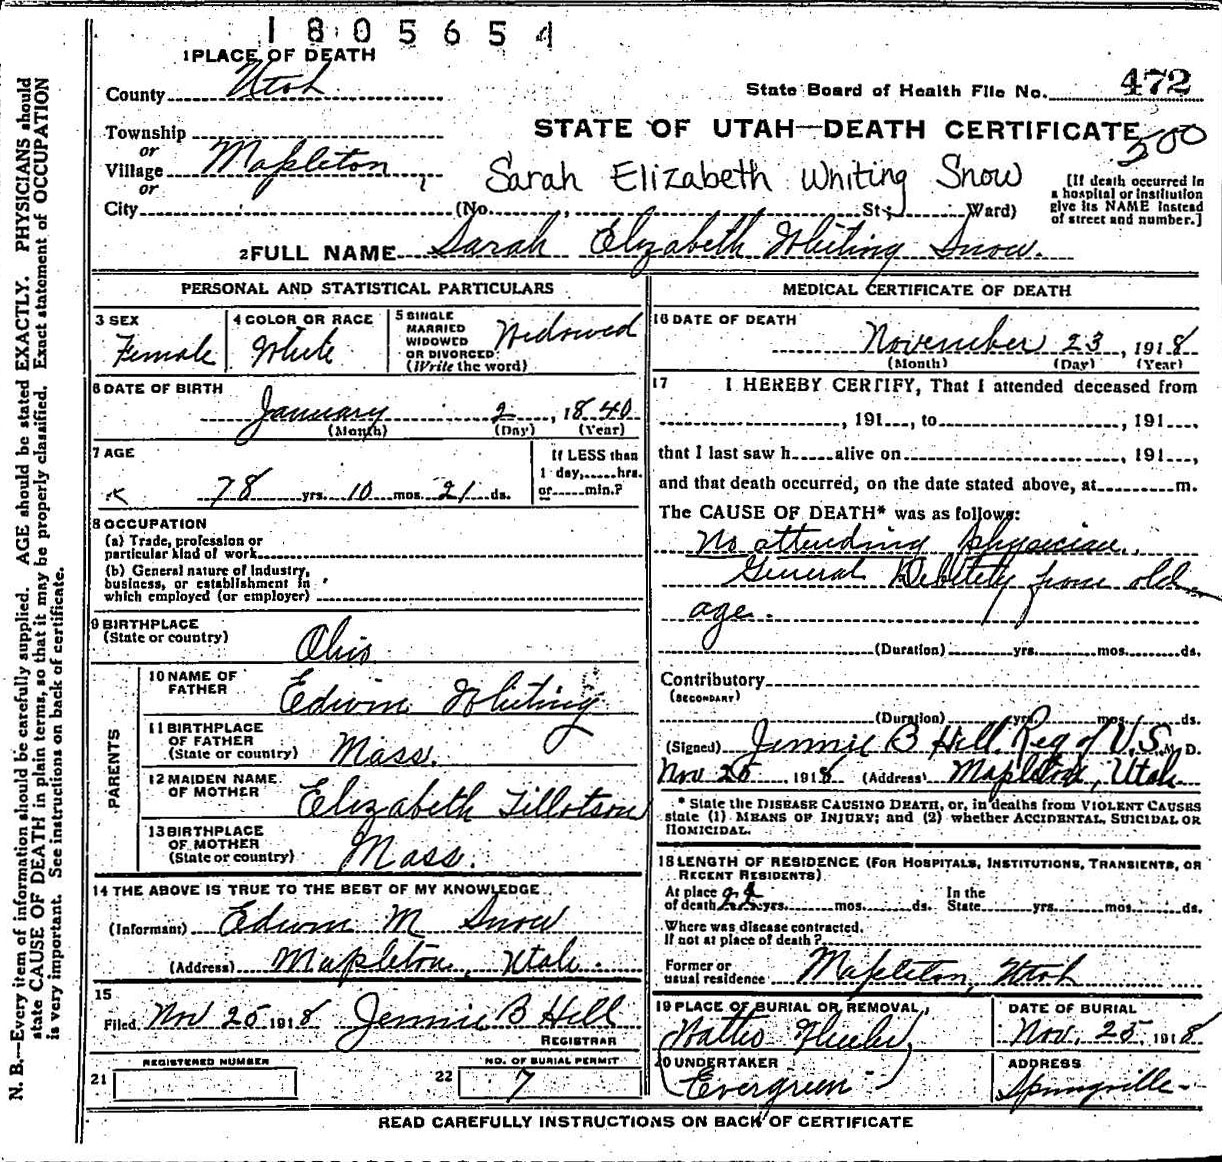 1805654
1 PLACE OF DEATH
County Utah
State Board of Health File No. 472
Township
or
STATE OF UTAH—DEATH CERTIFICATE
500
Village Mapleton
or
Sarah Elizabeth Whiting Snow
[If death occurred in
a hospital or institution
give its NAME instead
of street and number.]
City (No. , St; Ward)
2 FULL NAME Sarah Elizabeth Whiting Snow.
PERSONAL AND STATISTICAL PARTICULARS
3 SEX Female
4 COLOR OR RACE White
5 SINGLE
MARRIED
WIDOWED
OR DIVORCED
(Write the word)
Widowed
6 DATE OF BIRTH
January 2, 1840
(Month) (Day) (Year)
7 AGE
78 yrs. 10 mos. 21 ds.
If LESS than
1 day, hrs.
or min.?
8 OCCUPATION
(a) Trade, profession or
particular kind of work
(b) General nature of industry,
business, or establishment in
which employed (or employer)
9 BIRTHPLACE
(State or country)
Ohio
PARENTS
10 NAME OF
FATHER
Edwin Whiting
11 BIRTHPLACE
OF FATHER
(State or country)
Mass.
12 MAIDEN NAME
OF MOTHER
Elizabeth Tillotson
13 BIRTHPLACE
OF MOTHER
(State or country)
Mass.
14 THE ABOVE IS TRUE TO THE BEST OF MY KNOWLEDGE
(Informant) Edwin M Snow
(Address) Mapleton, Utah.
15
Filed Nov 25 1918 Jennie B Hill
REGISTRAR
REGISTERED NUMBER
21
NO. OF BURIAL PERMIT
22 7
MEDICAL CERTIFICATE OF DEATH
16 DATE OF DEATH
November 23, 1918
(Month) (Day) (Year)
17 I HEREBY CERTIFY, That I attended deceased from
, 191 , to , 191 ,
that I last saw h alive on , 191 ,
and that death occurred, on the date stated above, at m.
The CAUSE OF DEATH* was as follows:
No attending physician.
General Debility from old
age.
(Duration) yrs. mos. ds.
Contributory
(SECONDARY)
(Duration) yrs. mos. ds.
(Signed) Jennie B Hill. Reg of V.S. M. D.
Nov 25 1918 (Address) Mapleton, Utah
* State the DISEASE CAUSING DEATH, or, in deaths from VIOLENT CAUSES
state (1) MEANS OF INJURY; and (2) whether ACCIDENTAL, SUICIDAL OR
HOMICIDAL.
18 LENGTH OF RESIDENCE (FOR HOSPITALS, INSTITUTIONS, TRANSIENTS, OR
RECENT RESIDENTS)
At place
of death yrs. mos. ds.
In the
State yrs. mos. ds.
Where was disease contracted.
If not at place of death?
Former or
usual residence
Mapleton, Utah
19 PLACE OF BURIAL OR REMOVAL
DATE OF BURIAL
Nov. 25, 1918
20 UNDERTAKER
(Evergreen)
ADDRESS
Springville
READ CAREFULLY INSTRUCTIONS ON BACK OF CERTIFICATE
N. B.—Every item of information should be carefully supplied. AGE should be stated EXACTLY. PHYSICIANS should
state CAUSE OF DEATH in plain terms, so that it may be properly classified. Exact statement of OCCUPATION
is very important. See instructions on back of certificate.